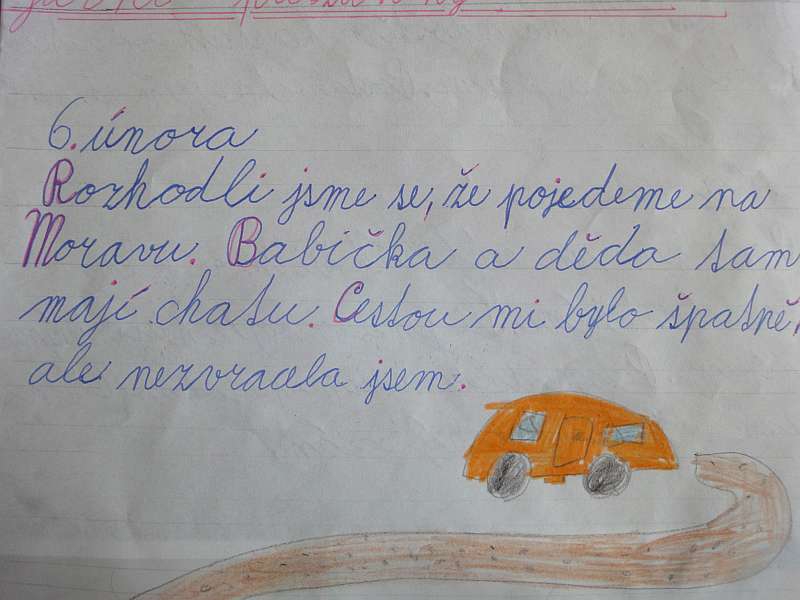 6. února
Rozhodli jsme se, že pojedeme na
Moravu. Babička a děda tam
mají chatu. Cestou mi bylo špatně,
ale nezvracela jsem.